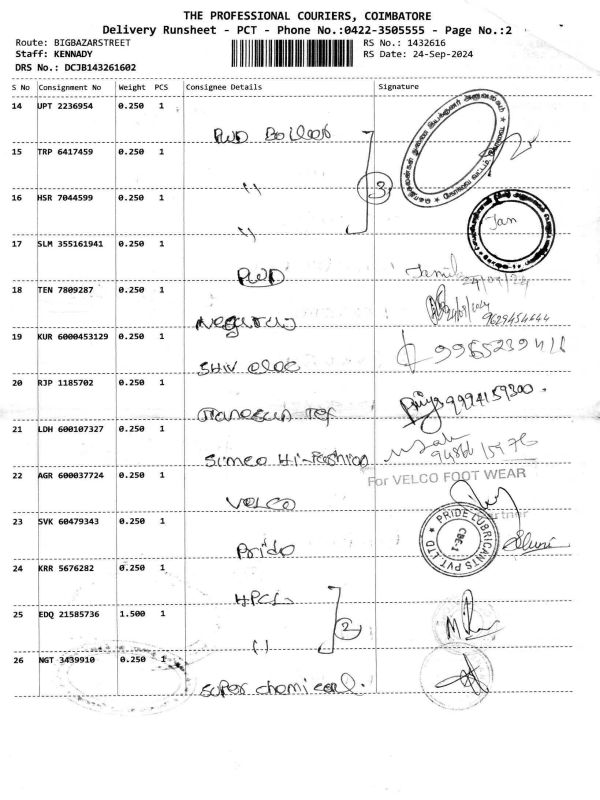 THE PROFESSIONAL COURIERS, COIMBATORE
Delivery Runsheet - PCT - Phone No.:0422-3505555 - Page No.:2
Route: BIGBAZARSTREET RS No.: 1432616
Staff: KENNADY RS Date: 24-Sep-2024
DRS No.: DCJB143261602
S No Consignment No Weight PCS Consignee Details Signature
14 UPT 2236954 0.250 1
PWD Boiler
15 TRP 6417459 0.250 1
"
3
16 HSR 7044599 0.250 1
"
Jan
17 SLM 355161941 0.250 1
PWD
Tamil
24/09/24
18 TEN 7809287 0.250 1
24/09/2024
9629454444
19 KUR 6000453129 0.250 1
SHIV elec
20 RJP 1185702 0.250 1
Priya 9994159300.
21 LDH 600107327 0.250 1
Simco Hi-Fashion
22 AGR 600037724 0.250 1
For VELCO FOOT WEAR
VELCO
Partner
23 SVK 60479343 0.250 1
PRIDE LUBRICANTS PVT. LTD
CBE-1
Pride
24 KRR 5676282 0.250 1
HPCL
25 EDQ 21585736 1.500 1
"
2
26 NGT 3439910 0.250 1
Super chemical.